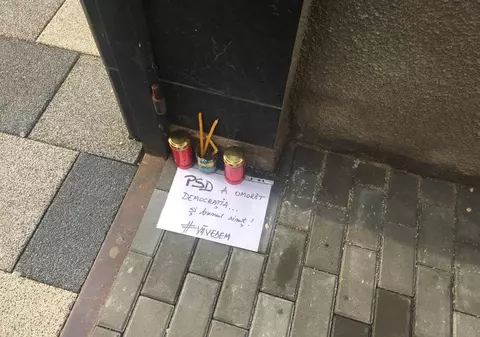 PSD A OMORÂT
DEMOCRAȚIA...
și bunul simț!
#VĂVEDEM